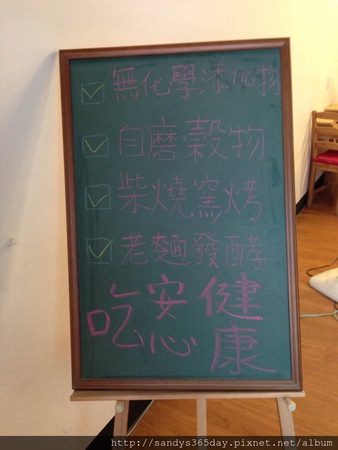 無化學添加物
自磨穀物
柴燒窯烤
老麵發酵
吃安心健康
http://sandys365day.pixnet.net/album